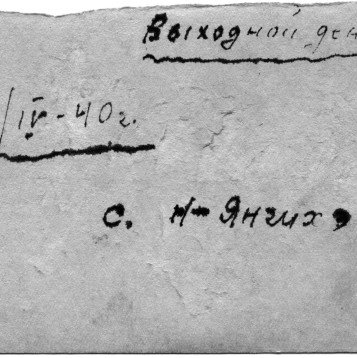 Выходной ден
/IV-40г.
с. Н-Янгих